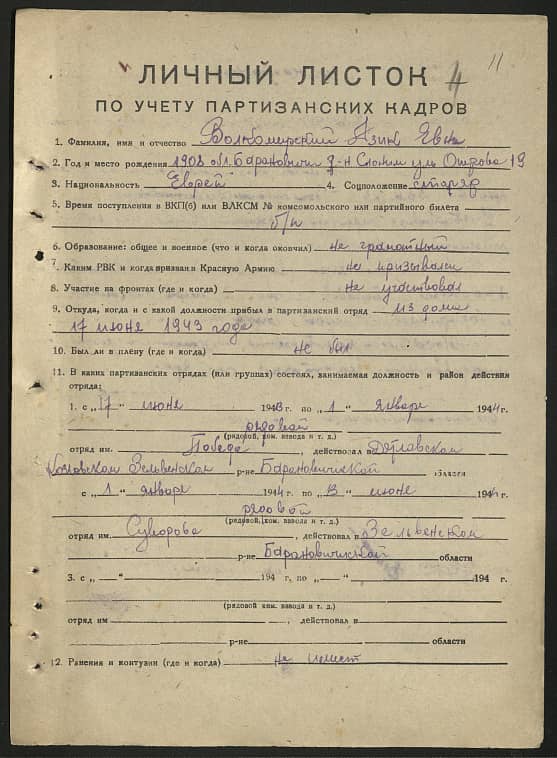 11
ЛИЧНЫЙ ЛИСТОК 4
ПО УЧЕТУ ПАРТИЗАНСКИХ КАДРОВ
1. Фамилия, имя и отчество Волкомирский Азик
2. Год и место рождения 1908 обл. Барановичи г-н Слоним ул 19
3. Национальность Еврей 4. Соцположение столяр
5. Время поступления в ВКП(б) или ВЛКСМ № комсомольского или партийного билета
б/п
6. Образование: общее и военное (что и когда окончил) не грамотный
7. Каким РВК и когда призван в Красную Армию не призывался
8. Участие на фронтах (где и когда) не участвовал
9. Откуда, когда и с какой должности прибыл в партизанский отряд из дома
17 июня 1943 года
10. Был ли в плену (где и когда) не был
11. В каких партизанских отрядах (или группах) состоял, занимаемая должность и район действия
отряда:
1. с „17“ июня 1943 г. по „1“ январь 1944 г.
рядовой
(рядовой, ком. взвода и т. д.)
отряд им. Победа, действовал в Дятлавском
Козловском Зельвенском р-не Барановичской области
с „1“ январь 1944 г. по „13“ июнь 1944 г.
рядовой
(рядовой, ком. взвода и т. д.)
отряд им Суворова, действовал в Зельвенском
р-не Барановичской области
3. с „ “ 194 г, по „ “ 194 г.
(рядовой ком. взвода и т. д.)
отряд им , действовал в
р-не области
12. Ранения и контузии (где и когда) не имеет